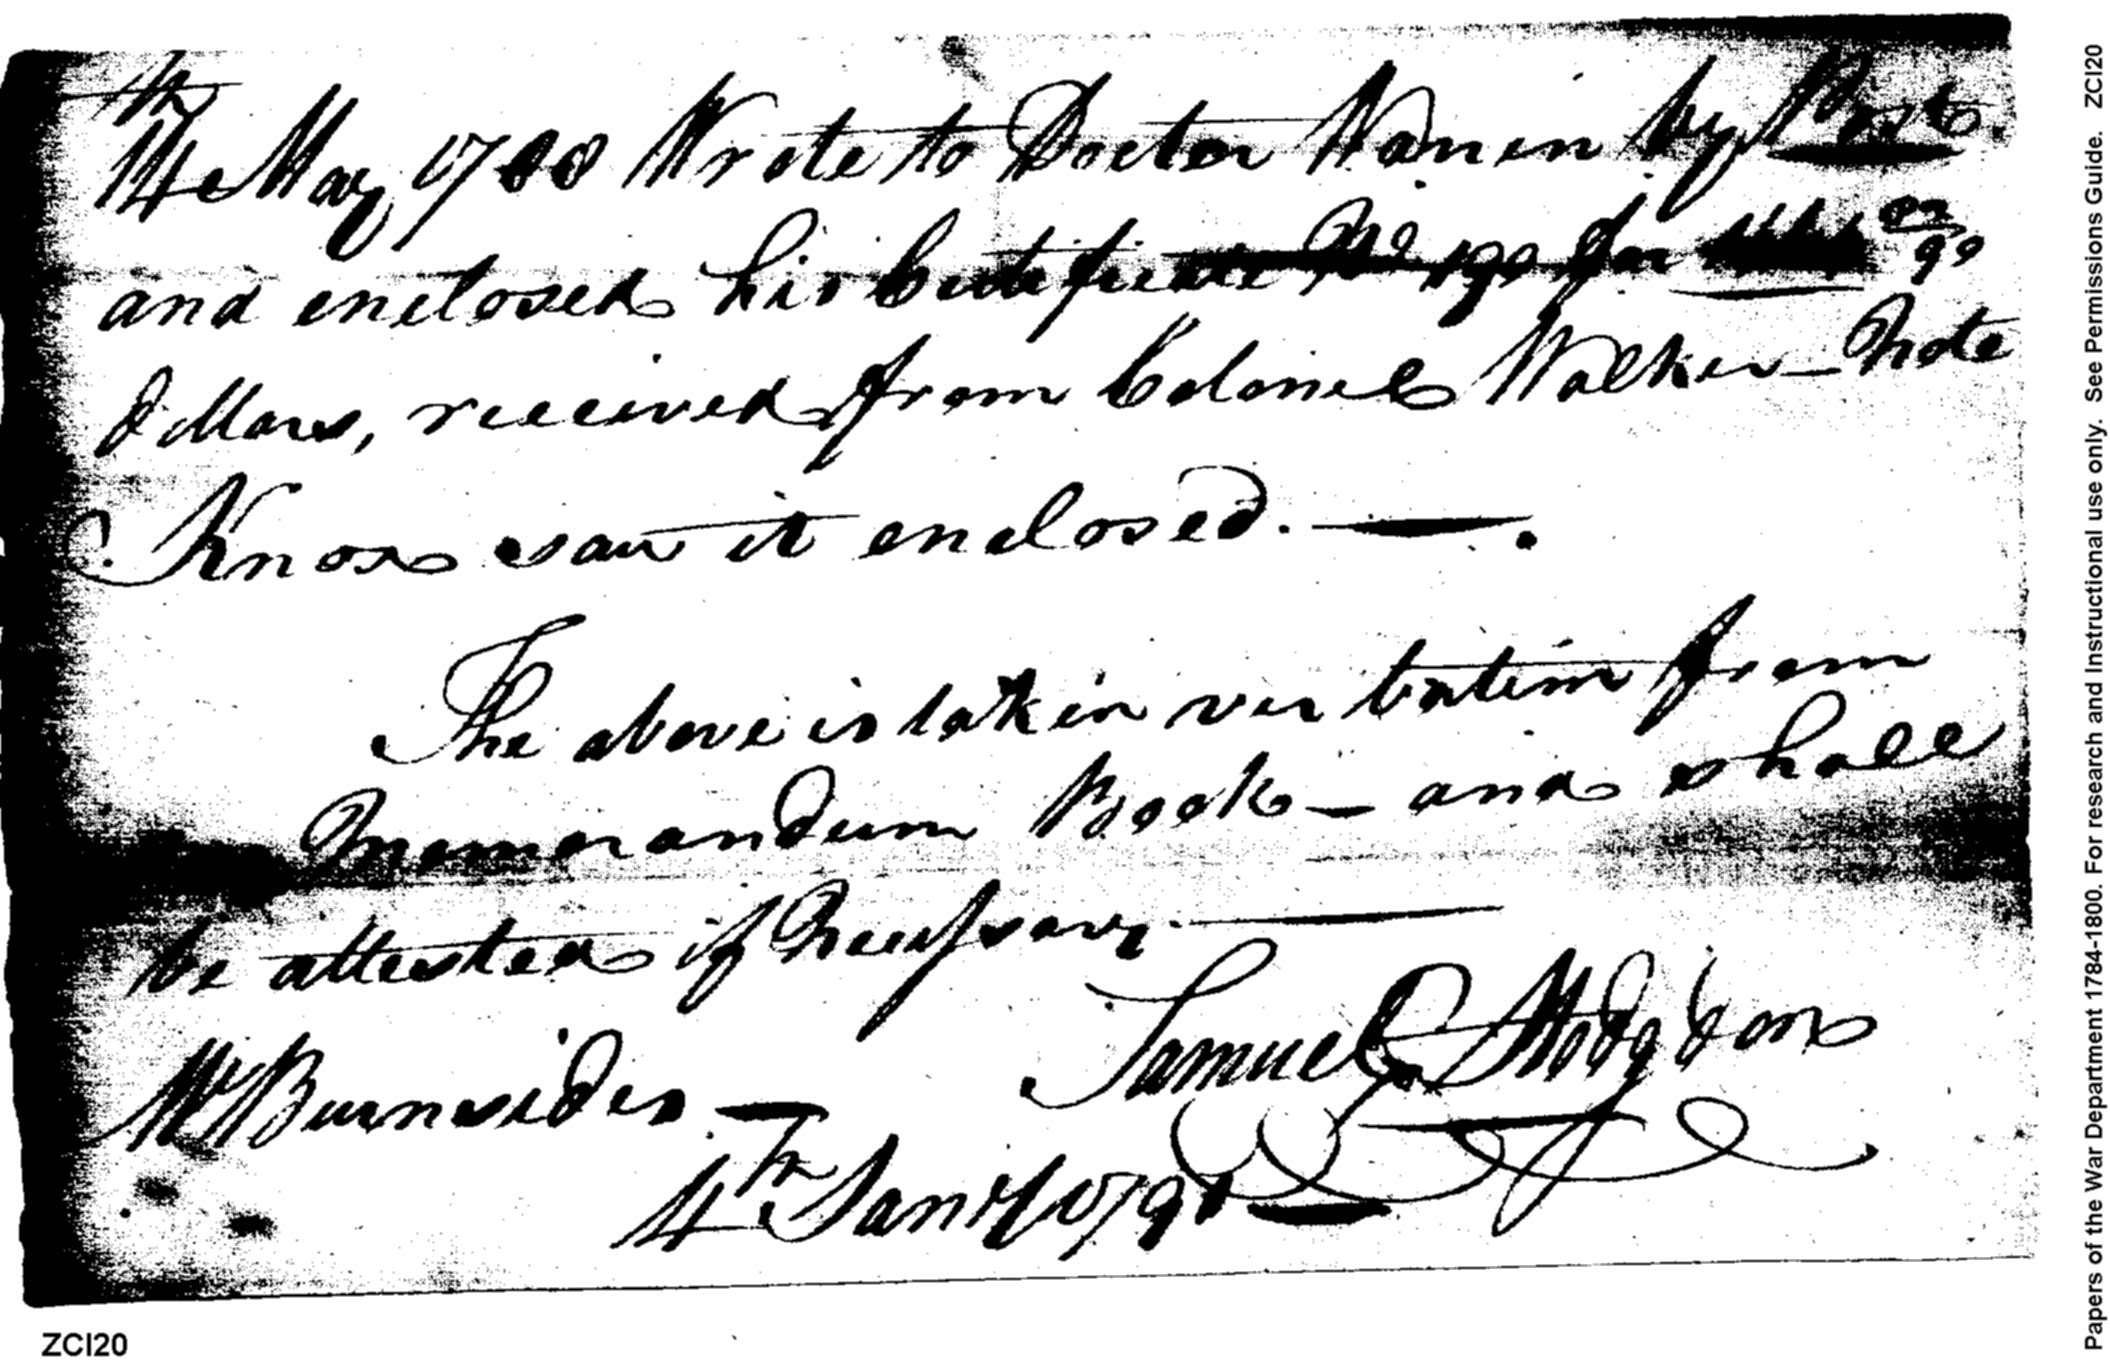 14th May 1788 Wrote to Doctor by Post
and enclosed his Certificate No 190 for 99
dollars, received from Colonel Walker - Note
Knox saw it enclosed. —
The above is taken verbatim from
Memorandum Book - and shall
be attested if Necessary. —
Samuel Hodgdon
Mr Burnsides —
4th Jany 1791
ZCI20
Papers of the War Department 1784-1800. For research and Instructional use only. See Permissions Guide. ZCI20